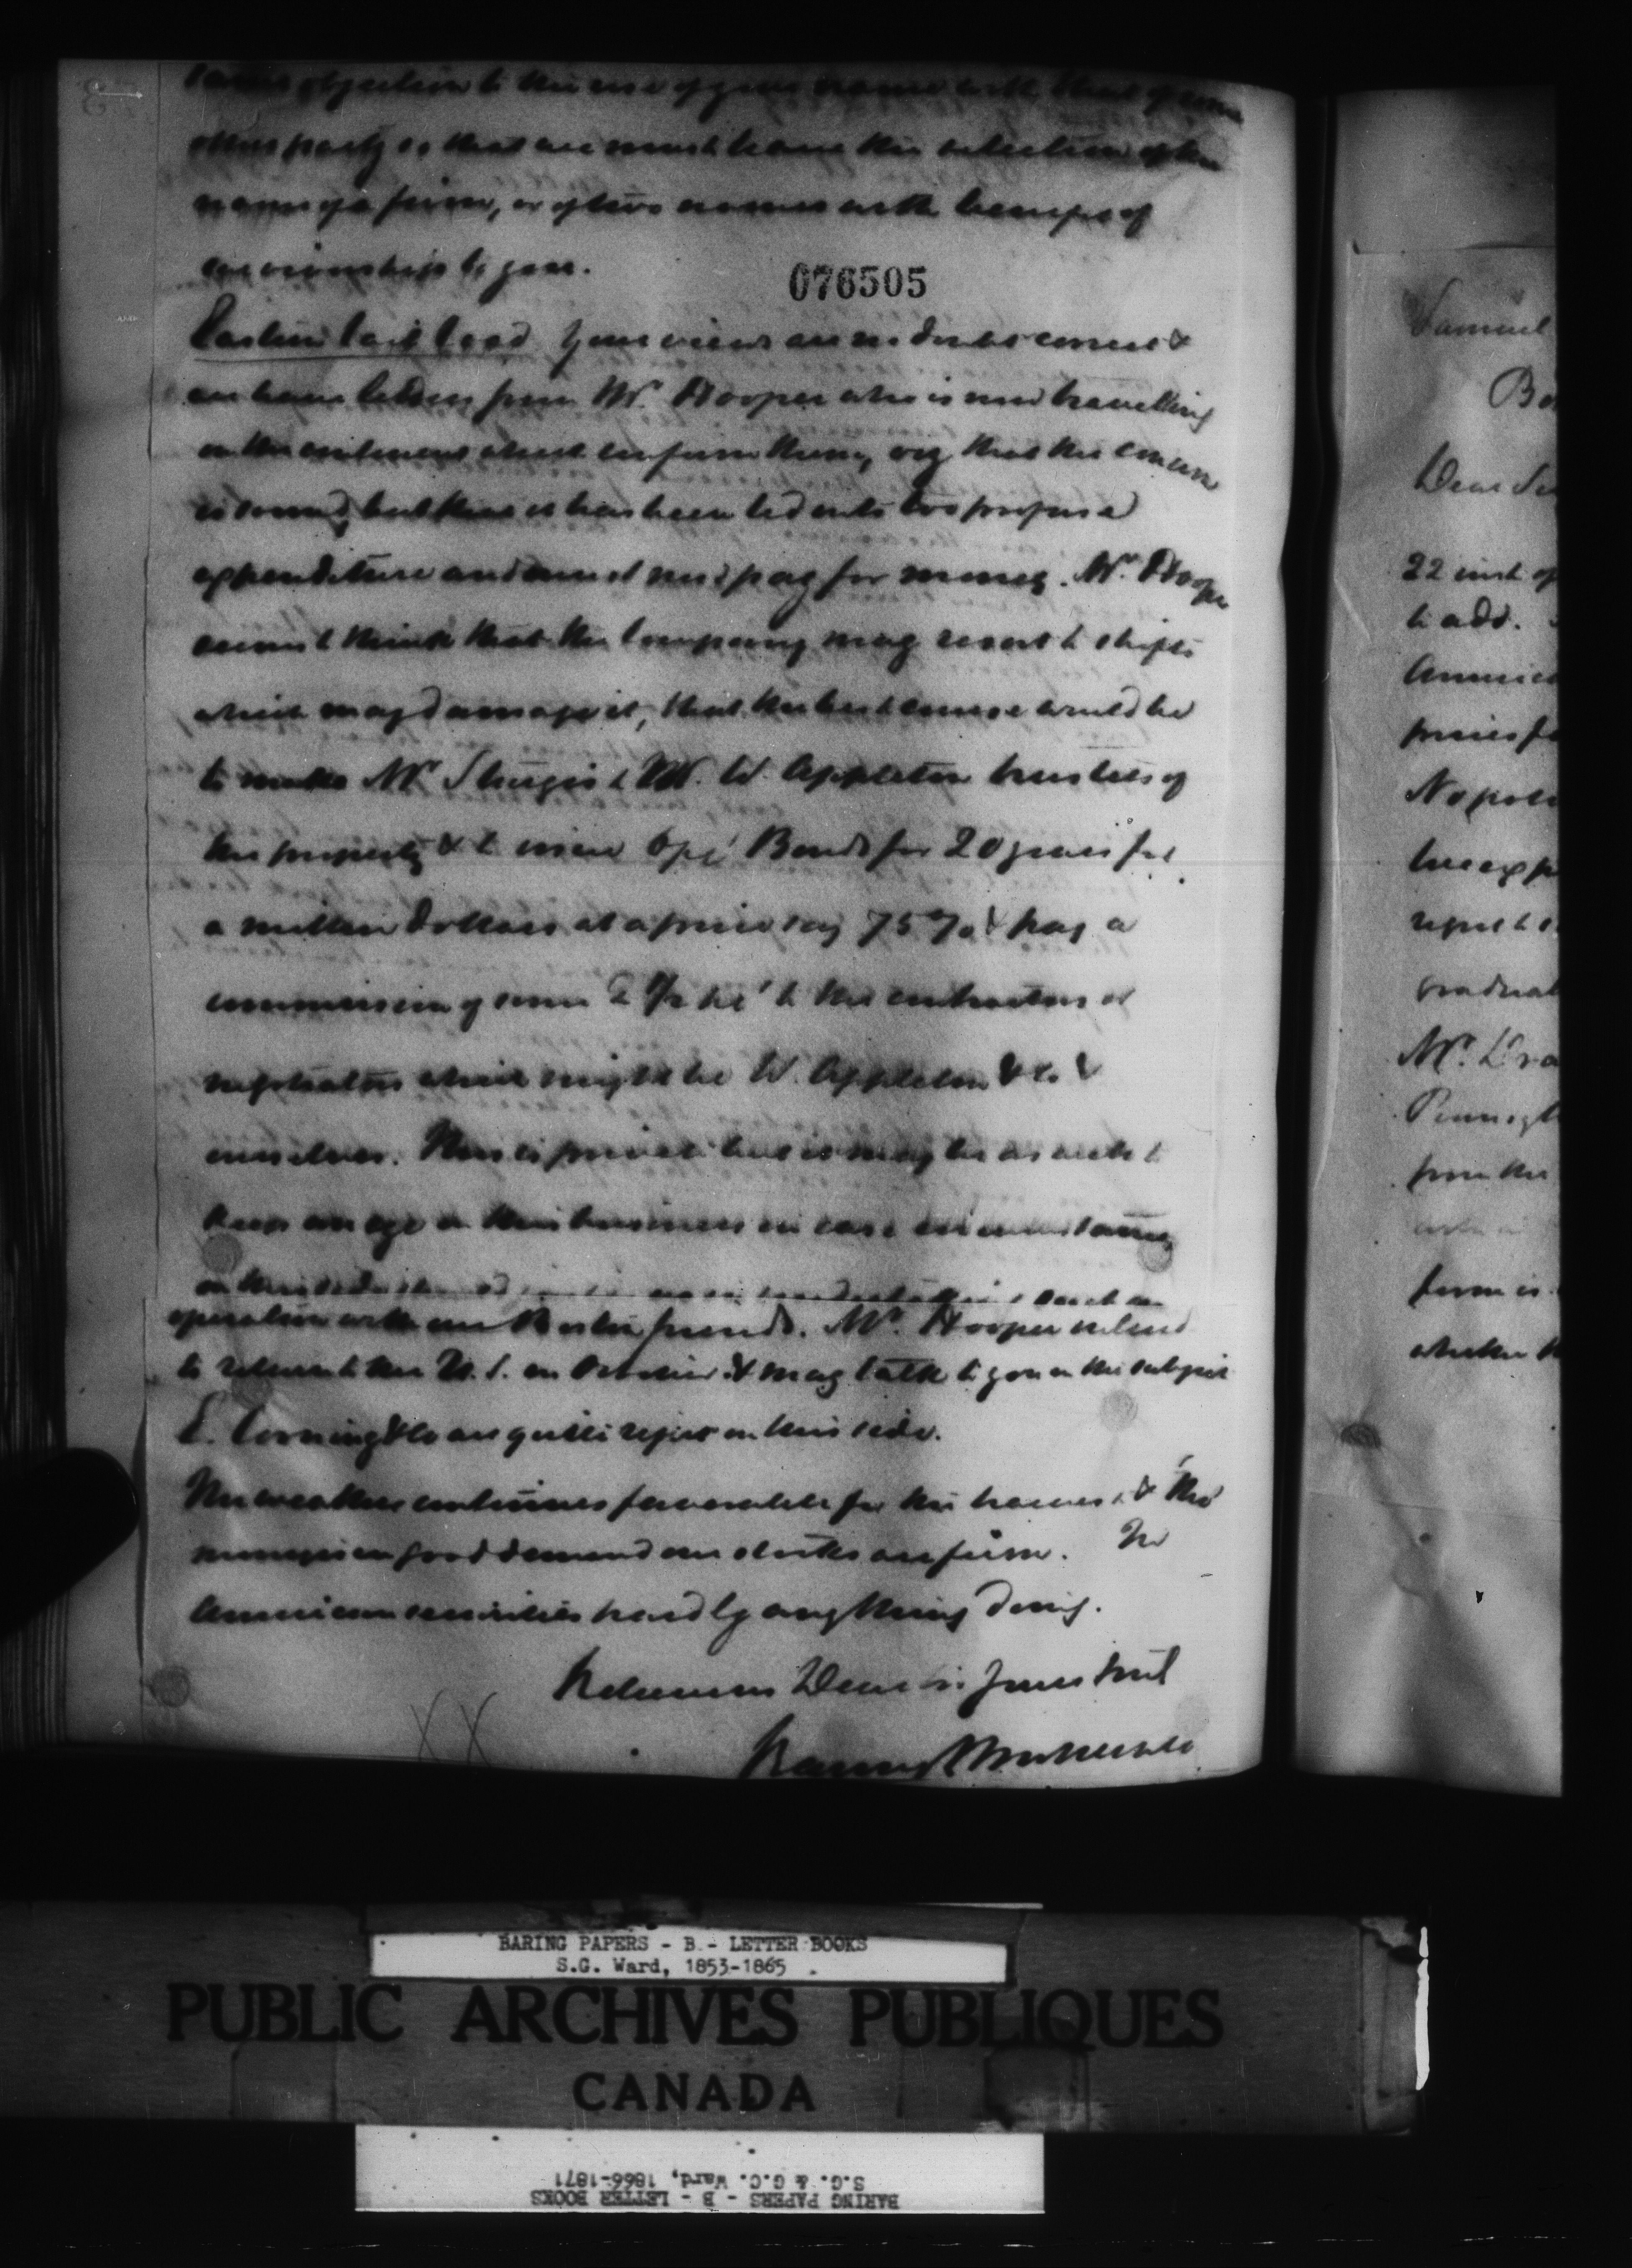 some objection to the use of your name with that of some
other party so that we must leave the selection of the
name of a firm, or of two names with benefit of
survivorship to you.
076505
Your views are no doubt correct &
we have letters from Mr. Hooper who is now travelling
on the continent which confirm them, viz that the concern
is sound, but that it has been led into too profuse
expenditure and must now pay for money. Mr. Hooper
seems to think that the Company may resort to shifts
which may damage it, that the best course would be
to make Mr Sturgis & Mr. W. Appleton trustees of
the property & to issue Bonds for 20 years for
a million dollars at a price say 75% & pay a
commission of some 2 to the contractors or
negotiators which might be W. Appleton & Co &
ourselves. This is private but it may be as well to
keep an eye on this business in case
on this side
operation with our Boston friends. Mr. Hooper intends
to return to the U.S. in October & may talk to you on the subject
E. Corning & Co are quite right on this side.
The weather continues favorable for the harvest & tho'
money is in good demand our stocks are firm. In
American securities hardly anything doing.
Dear Sir Yours truly
Samuel
Bo
Dear Sir
22 inst of
to add.
America
prices
Napole
regret to
gradual
Mr. Dra
Pennsyl
from the
form is
whether
BARING PAPERS - B - LETTER BOOKS
S.G. Ward, 1853-1865
PUBLIC ARCHIVES PUBLIQUES
CANADA
S.G. & G.C. Ward, 1866-1871
BARING PAPERS - B - LETTER BOOKS